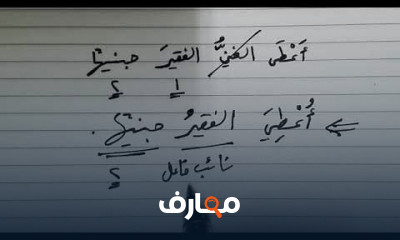 أَعْطَى الغنيُّ الفقيرَ جنيهًا
١ ٢
أُعْطِيَ الفقيرُ جنيهًا.
نائب فاعل ٢
معارف